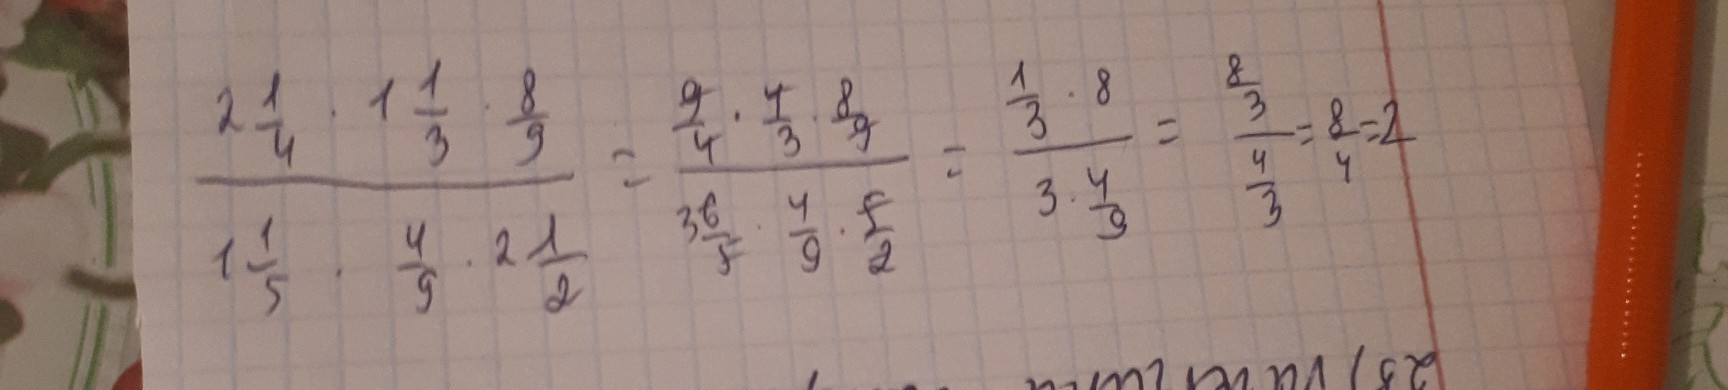 (2 1/4 · 1 1/3 · 8/9) / (1 1/5 · 4/9 · 2 1/2) = (9/4 · 4/3 · 8/9) / (3 6/5 · 4/9 · 5/2) = (1/3 · 8) / (3 · 4/9) = (8/3) / (4/3) = 8/4 = 2